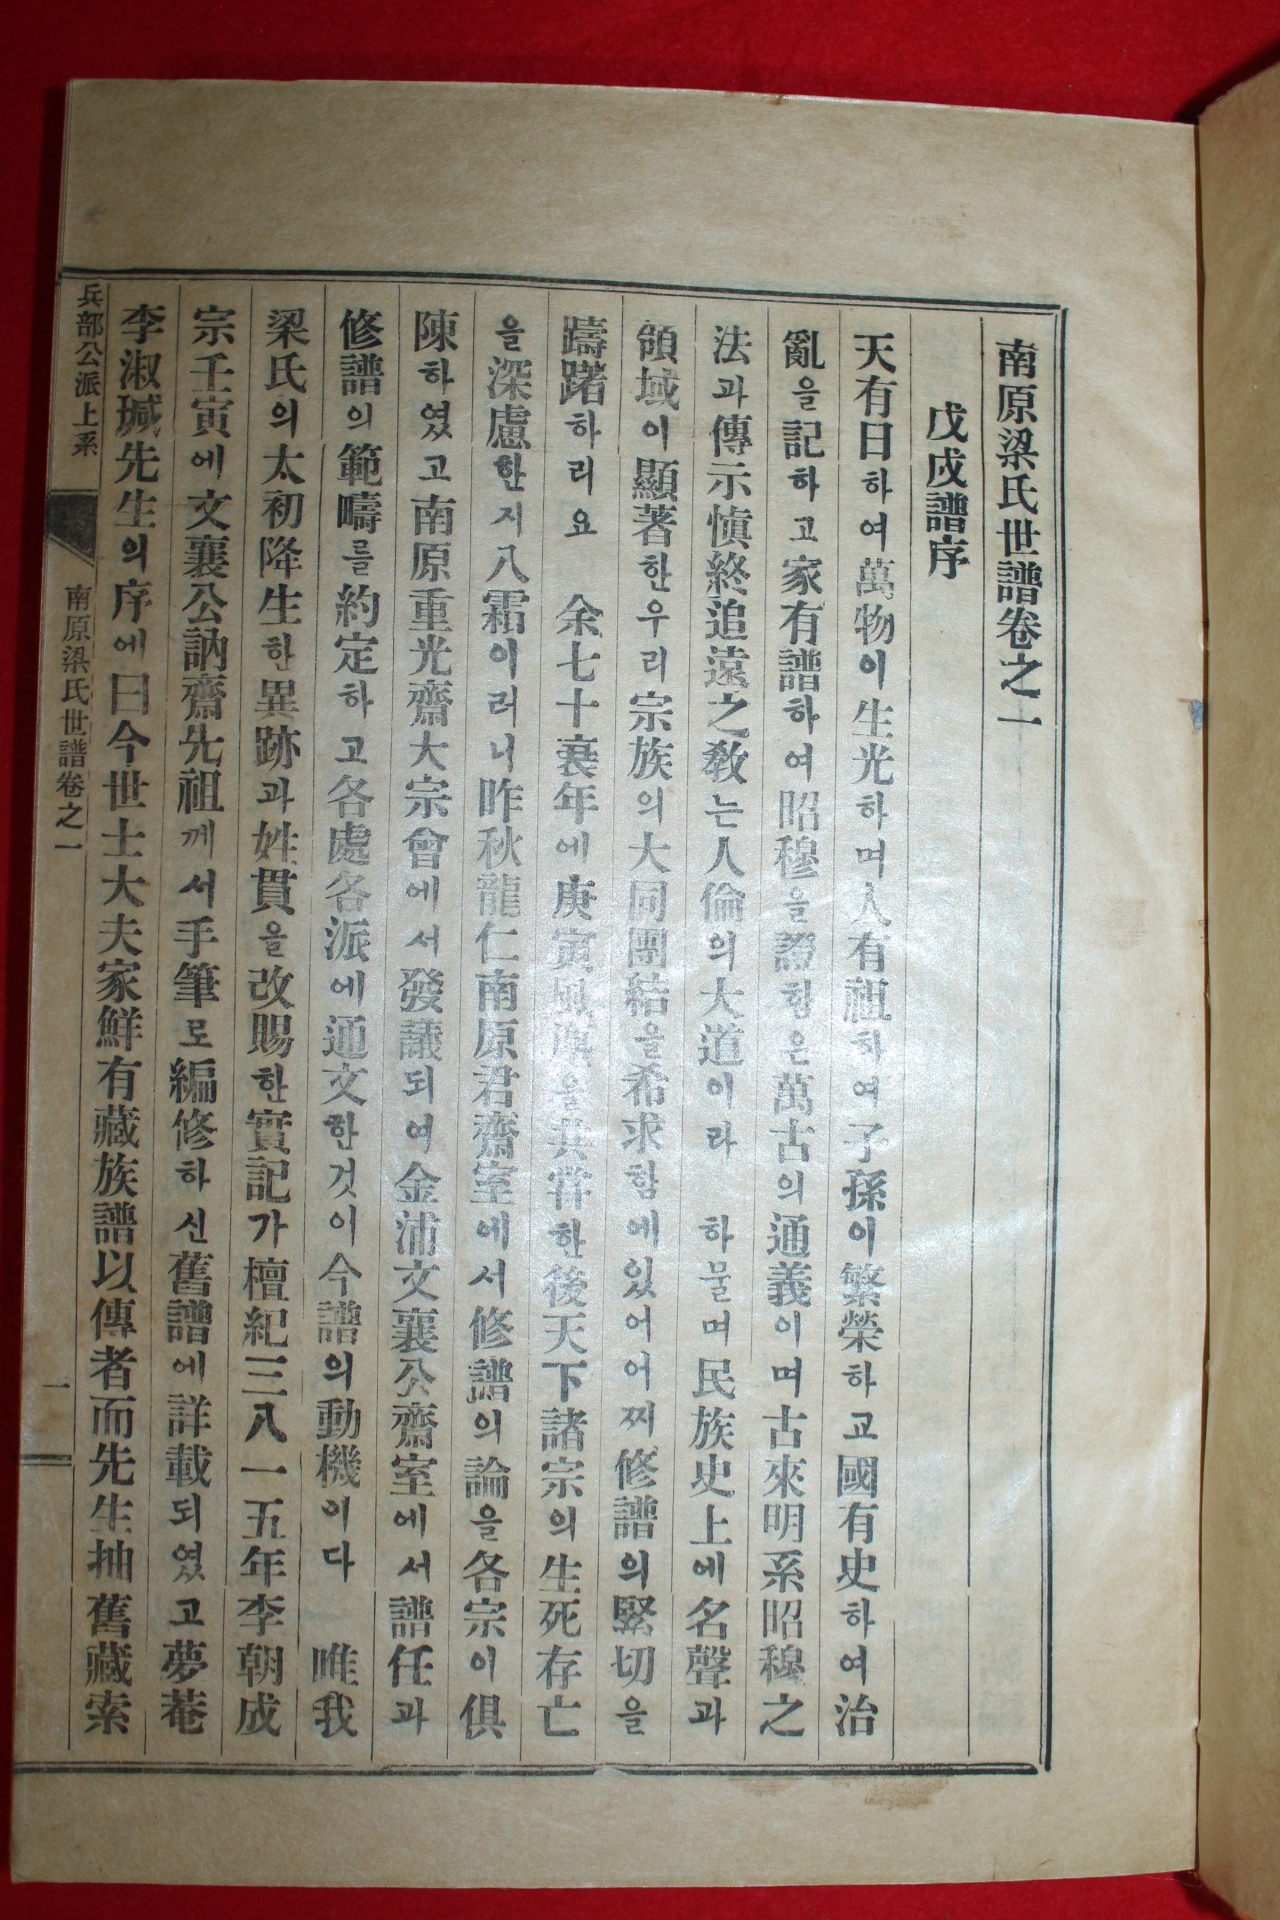 南原梁氏世譜卷之一
戊戌譜序
天有日하여萬物이生光하며人有祖하여子孫이繁榮하고國有史하여治
亂을記하고家有譜하여昭穆을證함은萬古의通義이며古來明系昭穆之
法과傳示愼終追遠之敎는人倫의大道이라 하물며民族史上에名聲과
領域이顯著한우리宗族의大同團結을希求함에있어어찌修譜의緊切을
躊躇하리요 余七十衰年에庚寅風을한後天下諸宗의生死存亡
을深慮한지八霜이러니昨秋龍仁南原君齋室에서修譜의論을各宗이俱
陳하였고南原重光齋大宗會에서發議되여金浦文襄公齋室에서譜任과
修譜의範疇를約定하고各處各派에通文한것이今譜의動機이다 唯我
梁氏의太初降生한異跡과姓貫을改賜한實記가檀紀三八一五年李朝成
宗壬寅에文襄公訥齋先祖께서手筆로編修하신舊譜에詳載되였고夢菴
李淑瑊先生의序에曰今世士大夫家鮮有藏族譜以傳者而先生抽舊藏索
兵部公派上系
南原梁氏世譜卷之一
一